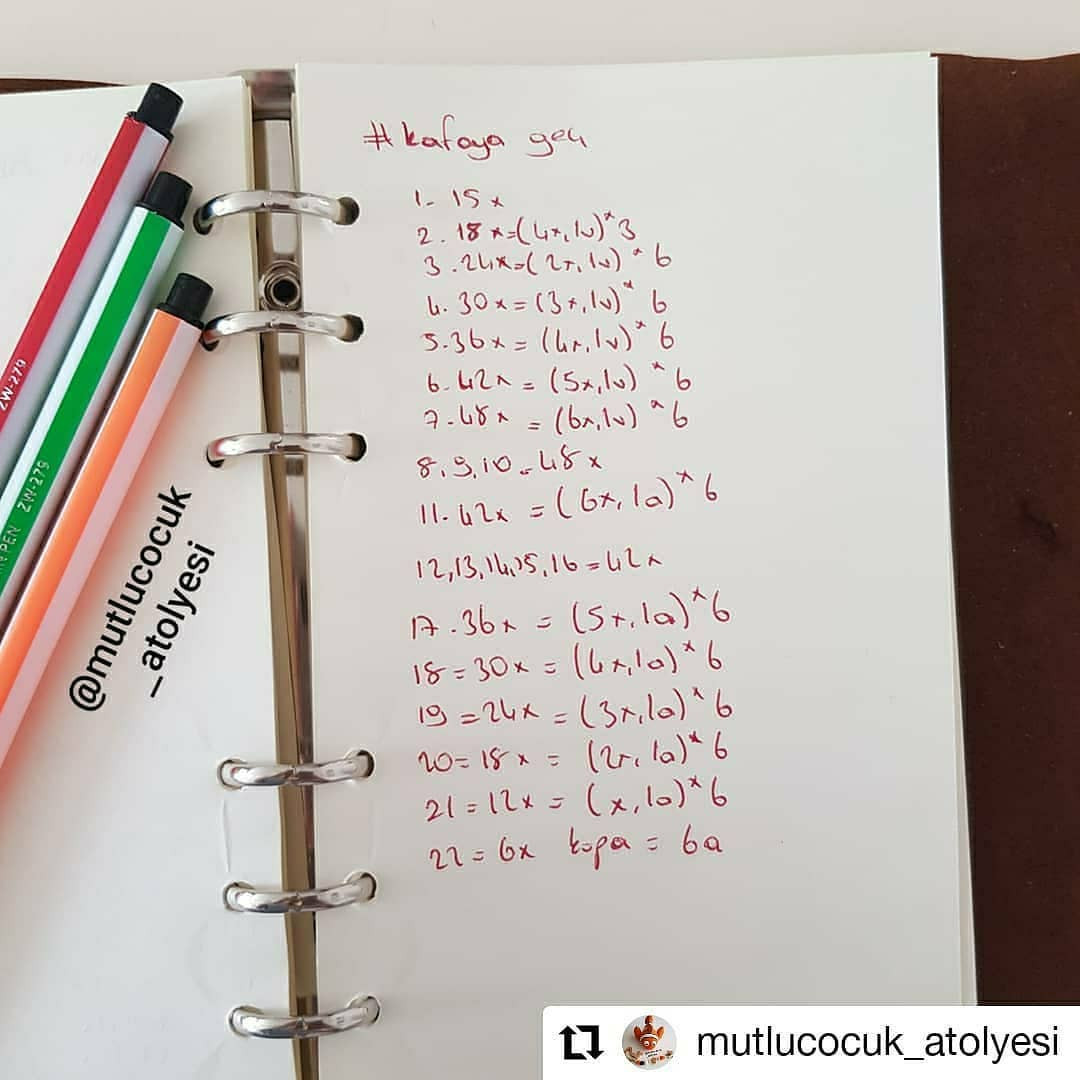 #kafaya geç
1- 15x
2. 18x=(4x,1v)*3
3.24x=(2x,1v)*6
4. 30x=(3x,1v)*6
5.36x=(4x,1v)*6
6.42x=(5x,1v)*6
7.48x=(6x,1v)*6
8,9,10=48x
11.42x=(6x,1a)*6
12,13,14,15,16=42x
17.36x=(5x,1a)*6
18=30x=(4x,1a)*6
19=24x=(3x,1a)*6
20=18x=(2x,1a)*6
21=12x=(x,1a)*6
22=6x kapa=6a
ZW-279
PEN ZW-279
@mutlucocuk
_atolyesi
mutlucocuk_atolyesi